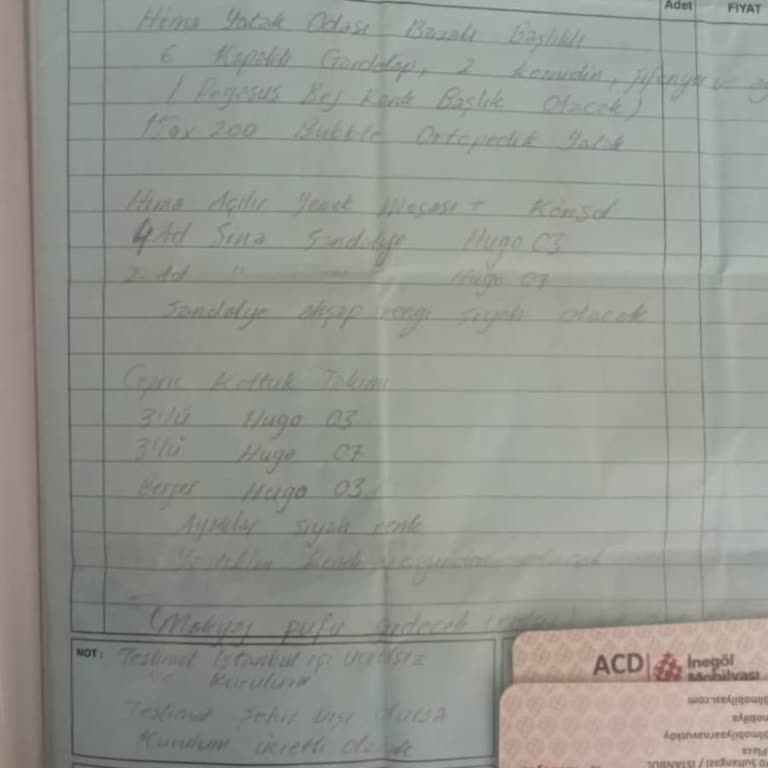 Adet FİYAT
Hima Yatak Odası Bazalı Başlıklı
6 Kapaklı Gardolap, 2 komidin, şifonyer
(Pegasus Bej Renk Başlık Olacak)
150x200 Bubble Ortopedik Yatak
Hima Açılır Yemek Masası + Konsol
4 Ad Sandalye Hugo 03
2 Ad " " Hugo 07
Sandalye ahşap rengi siyah olacak
Koltuk Takımı
3'lü Hugo 03
3'lü Hugo 07
Berjer Hugo 03
Ayaklar siyah renk
Yastıklar kendi olacak
(Makyaj pufu gidecek
NOT: Teslimat İstanbul içi ücretsiz
Kurulum
Teslimat Şehir Dışı olursa
Kurulum ücretli olacak
ACD İnegöl
Mobilyası
olmobilyasi.com
mobilya
olmobilyaarnavutköy
Plaza
70 Sultangazi / İSTANBUL